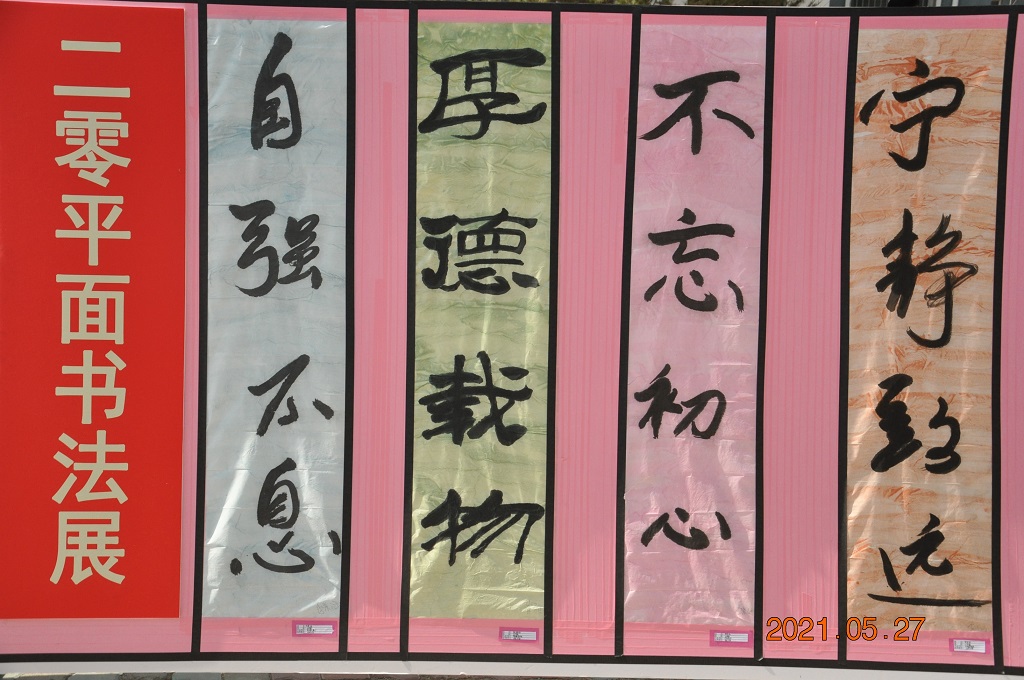 二零平面书法展
自强不息
厚德载物
不忘初心
宁静致远
2021.05.27